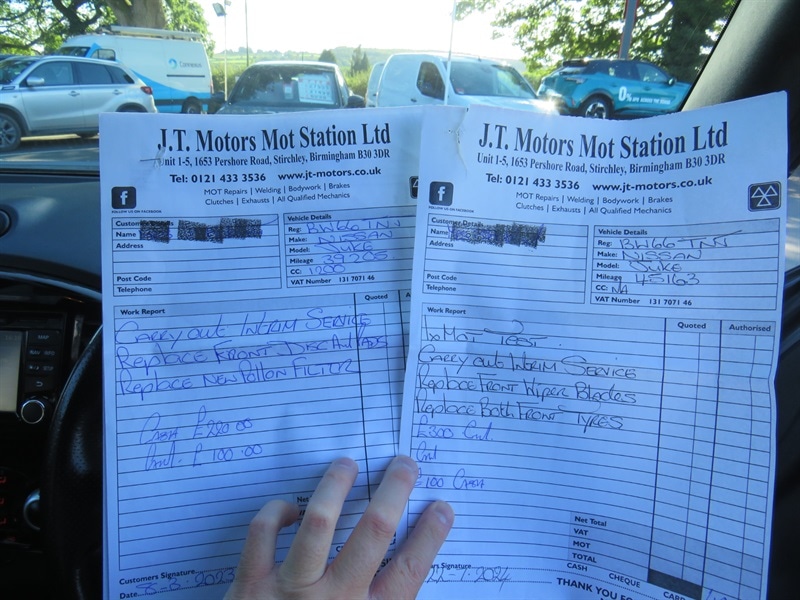 J.T. Motors Mot Station Ltd
Unit 1-5, 1653 Pershore Road, Stirchley, Birmingham B30 3DR
Tel: 0121 433 3536 www.jt-motors.co.uk
MOT Repairs | Welding | Bodywork | Brakes
Clutches | Exhausts | All Qualified Mechanics
FOLLOW US ON FACEBOOK
Customer Details
Name
Address
Post Code
Telephone
Vehicle Details
Reg: BW66 TNN
Make: NISSAN
Model: JUKE
Mileage 39205
CC: 1200
VAT Number 131 7071 46
Work Report
Quoted
CARRY OUT INTRIM SERVICE
REPLACE FRONT DISC AND PADS
REPLACE NEW POLLON FILTER
CASH £220.00
£100.00
Customers Signature
Date 8-8-2023
J.T. Motors Mot Station Ltd
Unit 1-5, 1653 Pershore Road, Stirchley, Birmingham B30 3DR
Tel: 0121 433 3536 www.jt-motors.co.uk
MOT Repairs | Welding | Bodywork | Brakes
Clutches | Exhausts | All Qualified Mechanics
FOLLOW US ON FACEBOOK
Customer Details
Name
Address
Post Code
Telephone
Vehicle Details
Reg: BW66 TNN
Make: NISSAN
Model: JUKE
Mileage 45163
CC: NA
VAT Number 131 7071 46
Work Report
Quoted
Authorised
MOT TEST.
CARRY OUT INTRIM SERVICE
REPLACE FRONT WIPER BLADES
REPLACE BOTH FRONT TYRES
£100 CASH
Net Total
VAT
MOT
TOTAL
CASH CHEQUE CARD
Signature
-1-2024
THANK YOU FO
0%
MAP